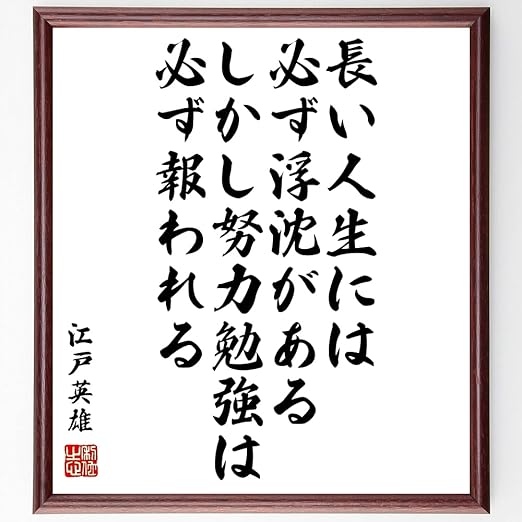 長い人生には
必ず浮沈がある
しかし努力勉強は
必ず報われる
江戸英雄